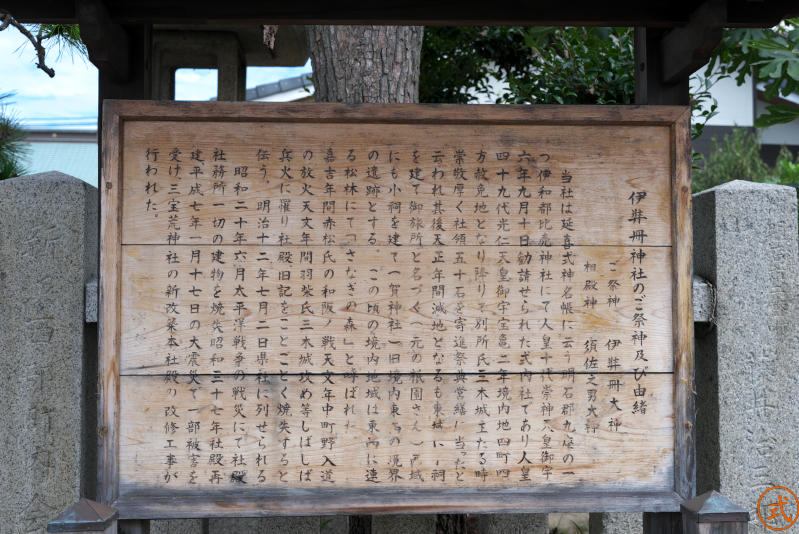 伊弉冊神社のご祭神及び由緒
ご祭神 伊弉冊大神
相殿神 須佐之男大神
当社は延喜式神名帳に云う明石郡九座の一
つ伊和都比売神社にて人皇十代崇神天皇御宇
六年九月十日勧請せられた式内社であり人皇
四十九代光仁天皇御宇宝亀二年境内地四町四
方赦免地となり降りて別所氏三木城主たる時
崇敬厚く社領五十石を寄進祭典営繕に当ったと
云われ其後天正年間減地となるも東城に小祠
を建て御旅所と名づく（元の祇園さん）西城
にも小祠を建て一賀神社（旧境内東西の境界
の遺跡とする。この頃の境内地域は東西に連
る松林にて「さなぎの森」と呼ばれた
嘉吉年間赤松氏の和阪ノ戦天文年中町野入道
の放火天文年間羽柴氏三木城攻め等しばしば
兵火に罹り社殿旧記をことごとく焼失すると
伝う。明治十二年七月二日県社に列せられる
昭和二十年六月太平洋戦争の戦災にて社殿
社務所一切の建物を焼失昭和三十七年社殿再
建平成七年一月十七日の大震災で一部被害を
受け、三宝荒神社の新改築本社殿の改修工事が
行われた。
式